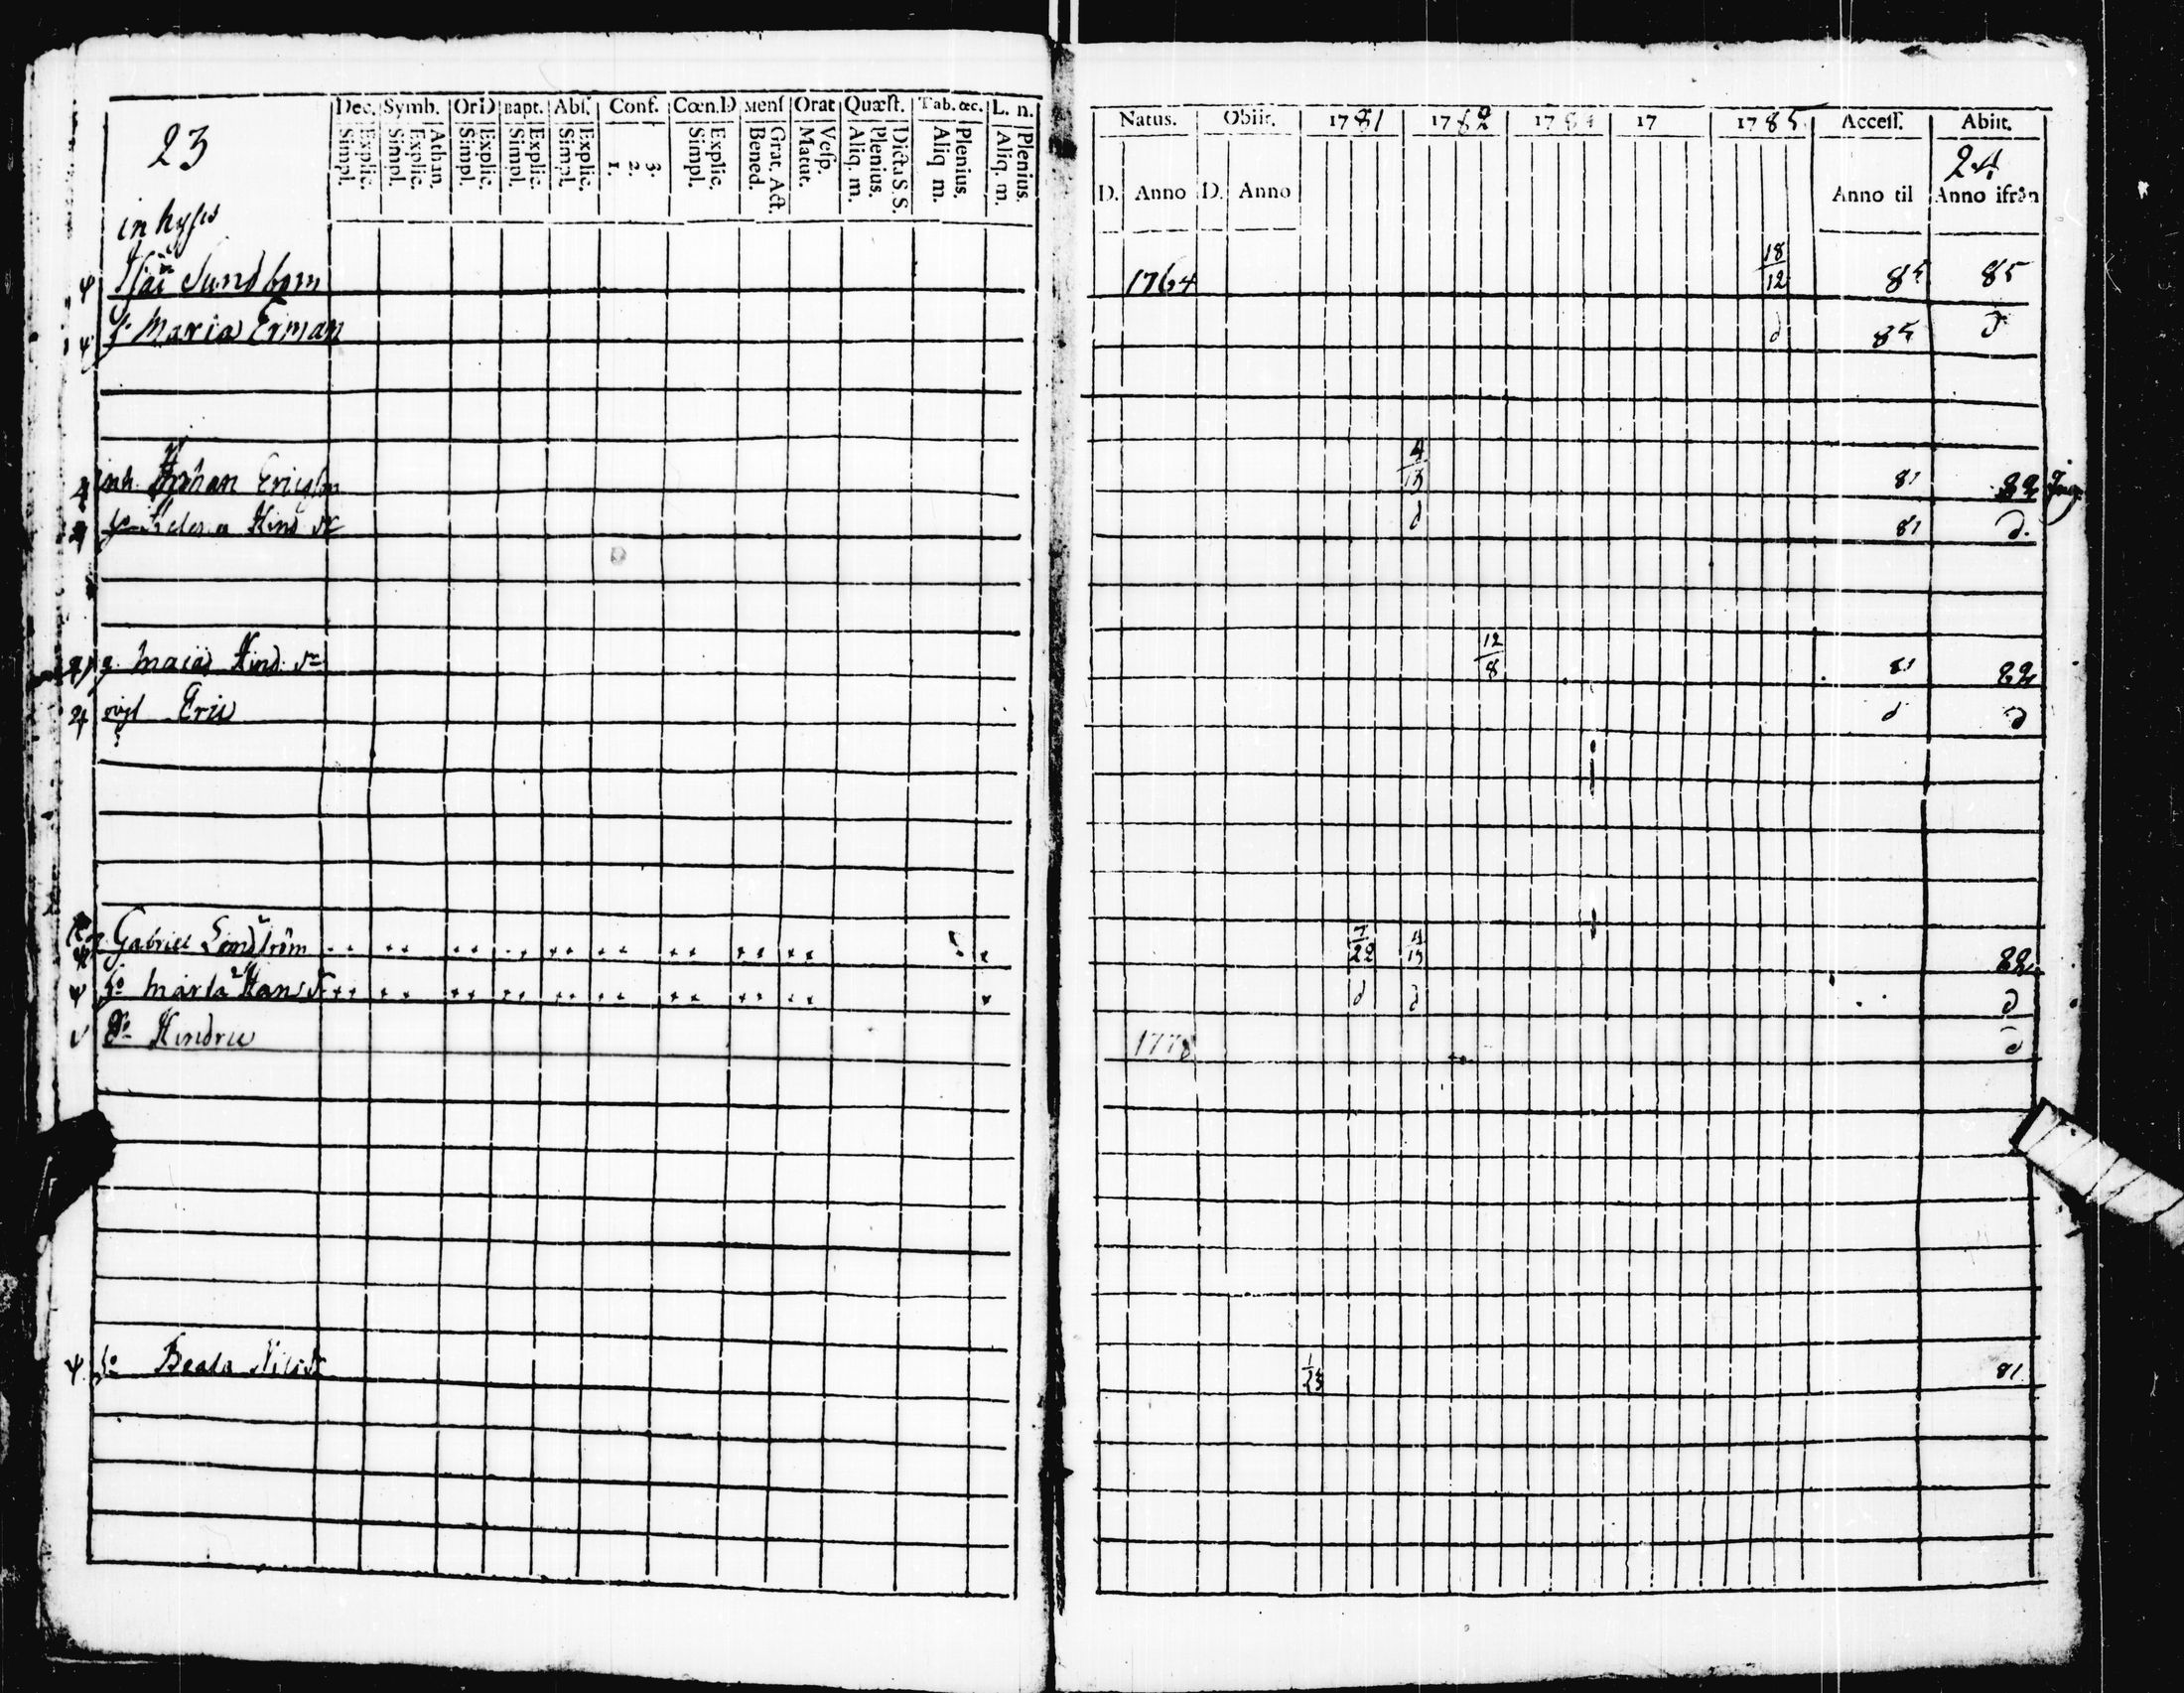 Dec. Symb. OrD Bapt. Abs. Conf. Cœn.D Mens Orat Quæst. Tab. œc. L. n.
Explic. Simpl. Athan. Explic. Simpl. Explic. Simpl. Explic. Simpl. Explic. Simpl. 3. 2. 1. Explic. Simpl. Grat. Act. Bened. Vesp. Matut. Dicta S. S. Plenius. Aliq. m. Plenius. Aliq. m. Plenius. Aliq. m.
23
inhyses
Sundbom
Maria Erman
inh. Johan Ericsson
Helena Hind
Maria Hind
Eric
Gabriel Lindström
h:o Maria Hans
Hindric
h:o Beata Nils
Natus. Obiit. 1781 1782 178 17 1785 Access. Abiit.
24
D. Anno D. Anno Anno til Anno ifrån
1764 18/12 85 85
d 85 d
4/13 81 82
d 81 d.
12/8 81 82
d d
7/22 4/13 82
d d d
1778 d
81